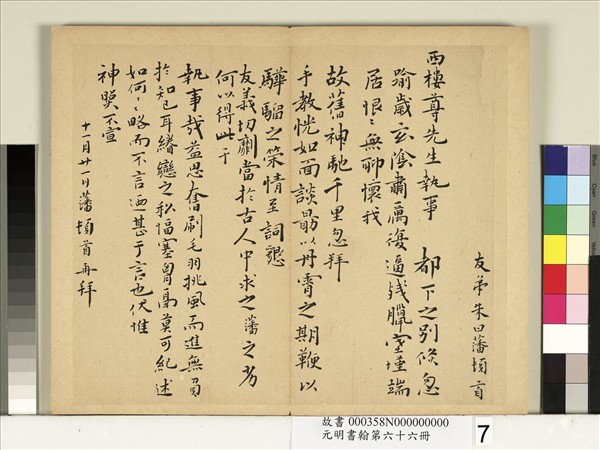 友弟朱曰藩頓首
西樓尊先生執事
都下之別倏忽
踰歲玄陰肅厲復逼殘臘塞堙端
居恨々無聊懷我
故舊神馳千里忽拜
手教恍如面談勗以丹霄之期鞭以
驊騮之策情至詞懇
友義切劘當於古人中求之藩之考
何以得此于
執事哉益思奮刷毛羽挑風而進無負
於知己耳繾戀之私愊塞胸鬲莫可紀述
如何々略而不言洒甚于言也伏惟
神睽不宣
十一月廿一日藩頓首再拜
故書 000358N000000000
元明書翰第六十六冊
7
Blue
Cyan
Green
Yellow